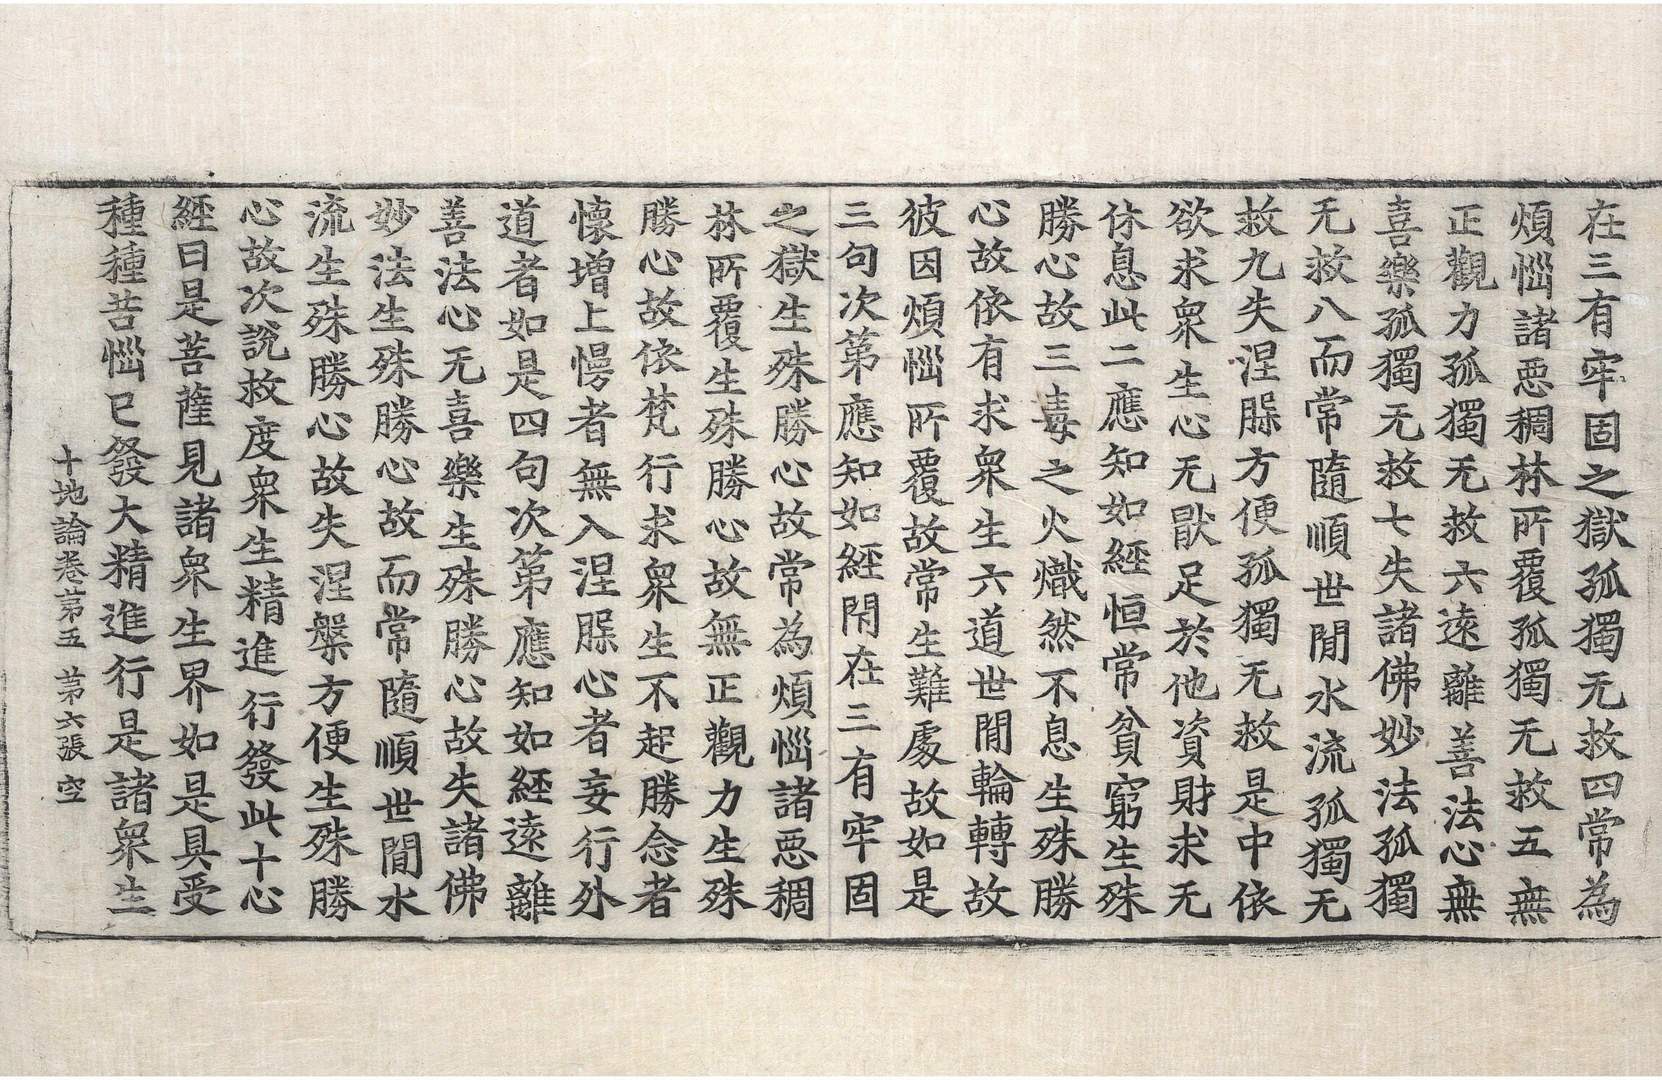 在三有牢固之獄孤獨无救四常為
煩惱諸惡稠林所覆孤獨无救五無
正觀力孤獨无救六遠離善法心無
喜樂孤獨无救七失諸佛妙法孤獨
无救八而常隨順世間水流孤獨无
救九失涅槃方便孤獨无救是中依
欲求衆生心无猒足於他資財求无
休息此二應知如經恒常貧窮生殊
勝心故三毒之火熾然不息生殊勝
心故依有求衆生六道世間輪轉故
彼因煩惱所覆故常生難處故如是
三句次第應知如經閇在三有牢固
之獄生殊勝心故常為煩惱諸惡稠
林所覆生殊勝心故無正觀力生殊
勝心故依梵行求衆生不起勝念者
懷增上慢者無入涅槃心者妄行外
道者如是四句次第應知如經遠離
善法心无喜樂生殊勝心故失諸佛
妙法生殊勝心故而常隨順世間水
流生殊勝心故失涅槃方便生殊勝
心故次說救度衆生精進行發此十心
經曰是菩薩見諸衆生界如是具受
種種苦惱已發大精進行是諸衆生
十地論卷第五　第六張　空